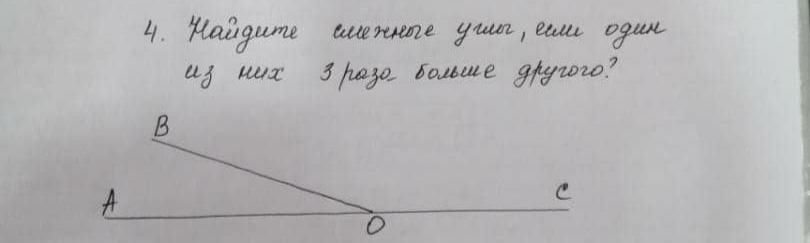 4. Найдите смежные углы, если один
из них 3 раза больше другого?
B
A
C
O